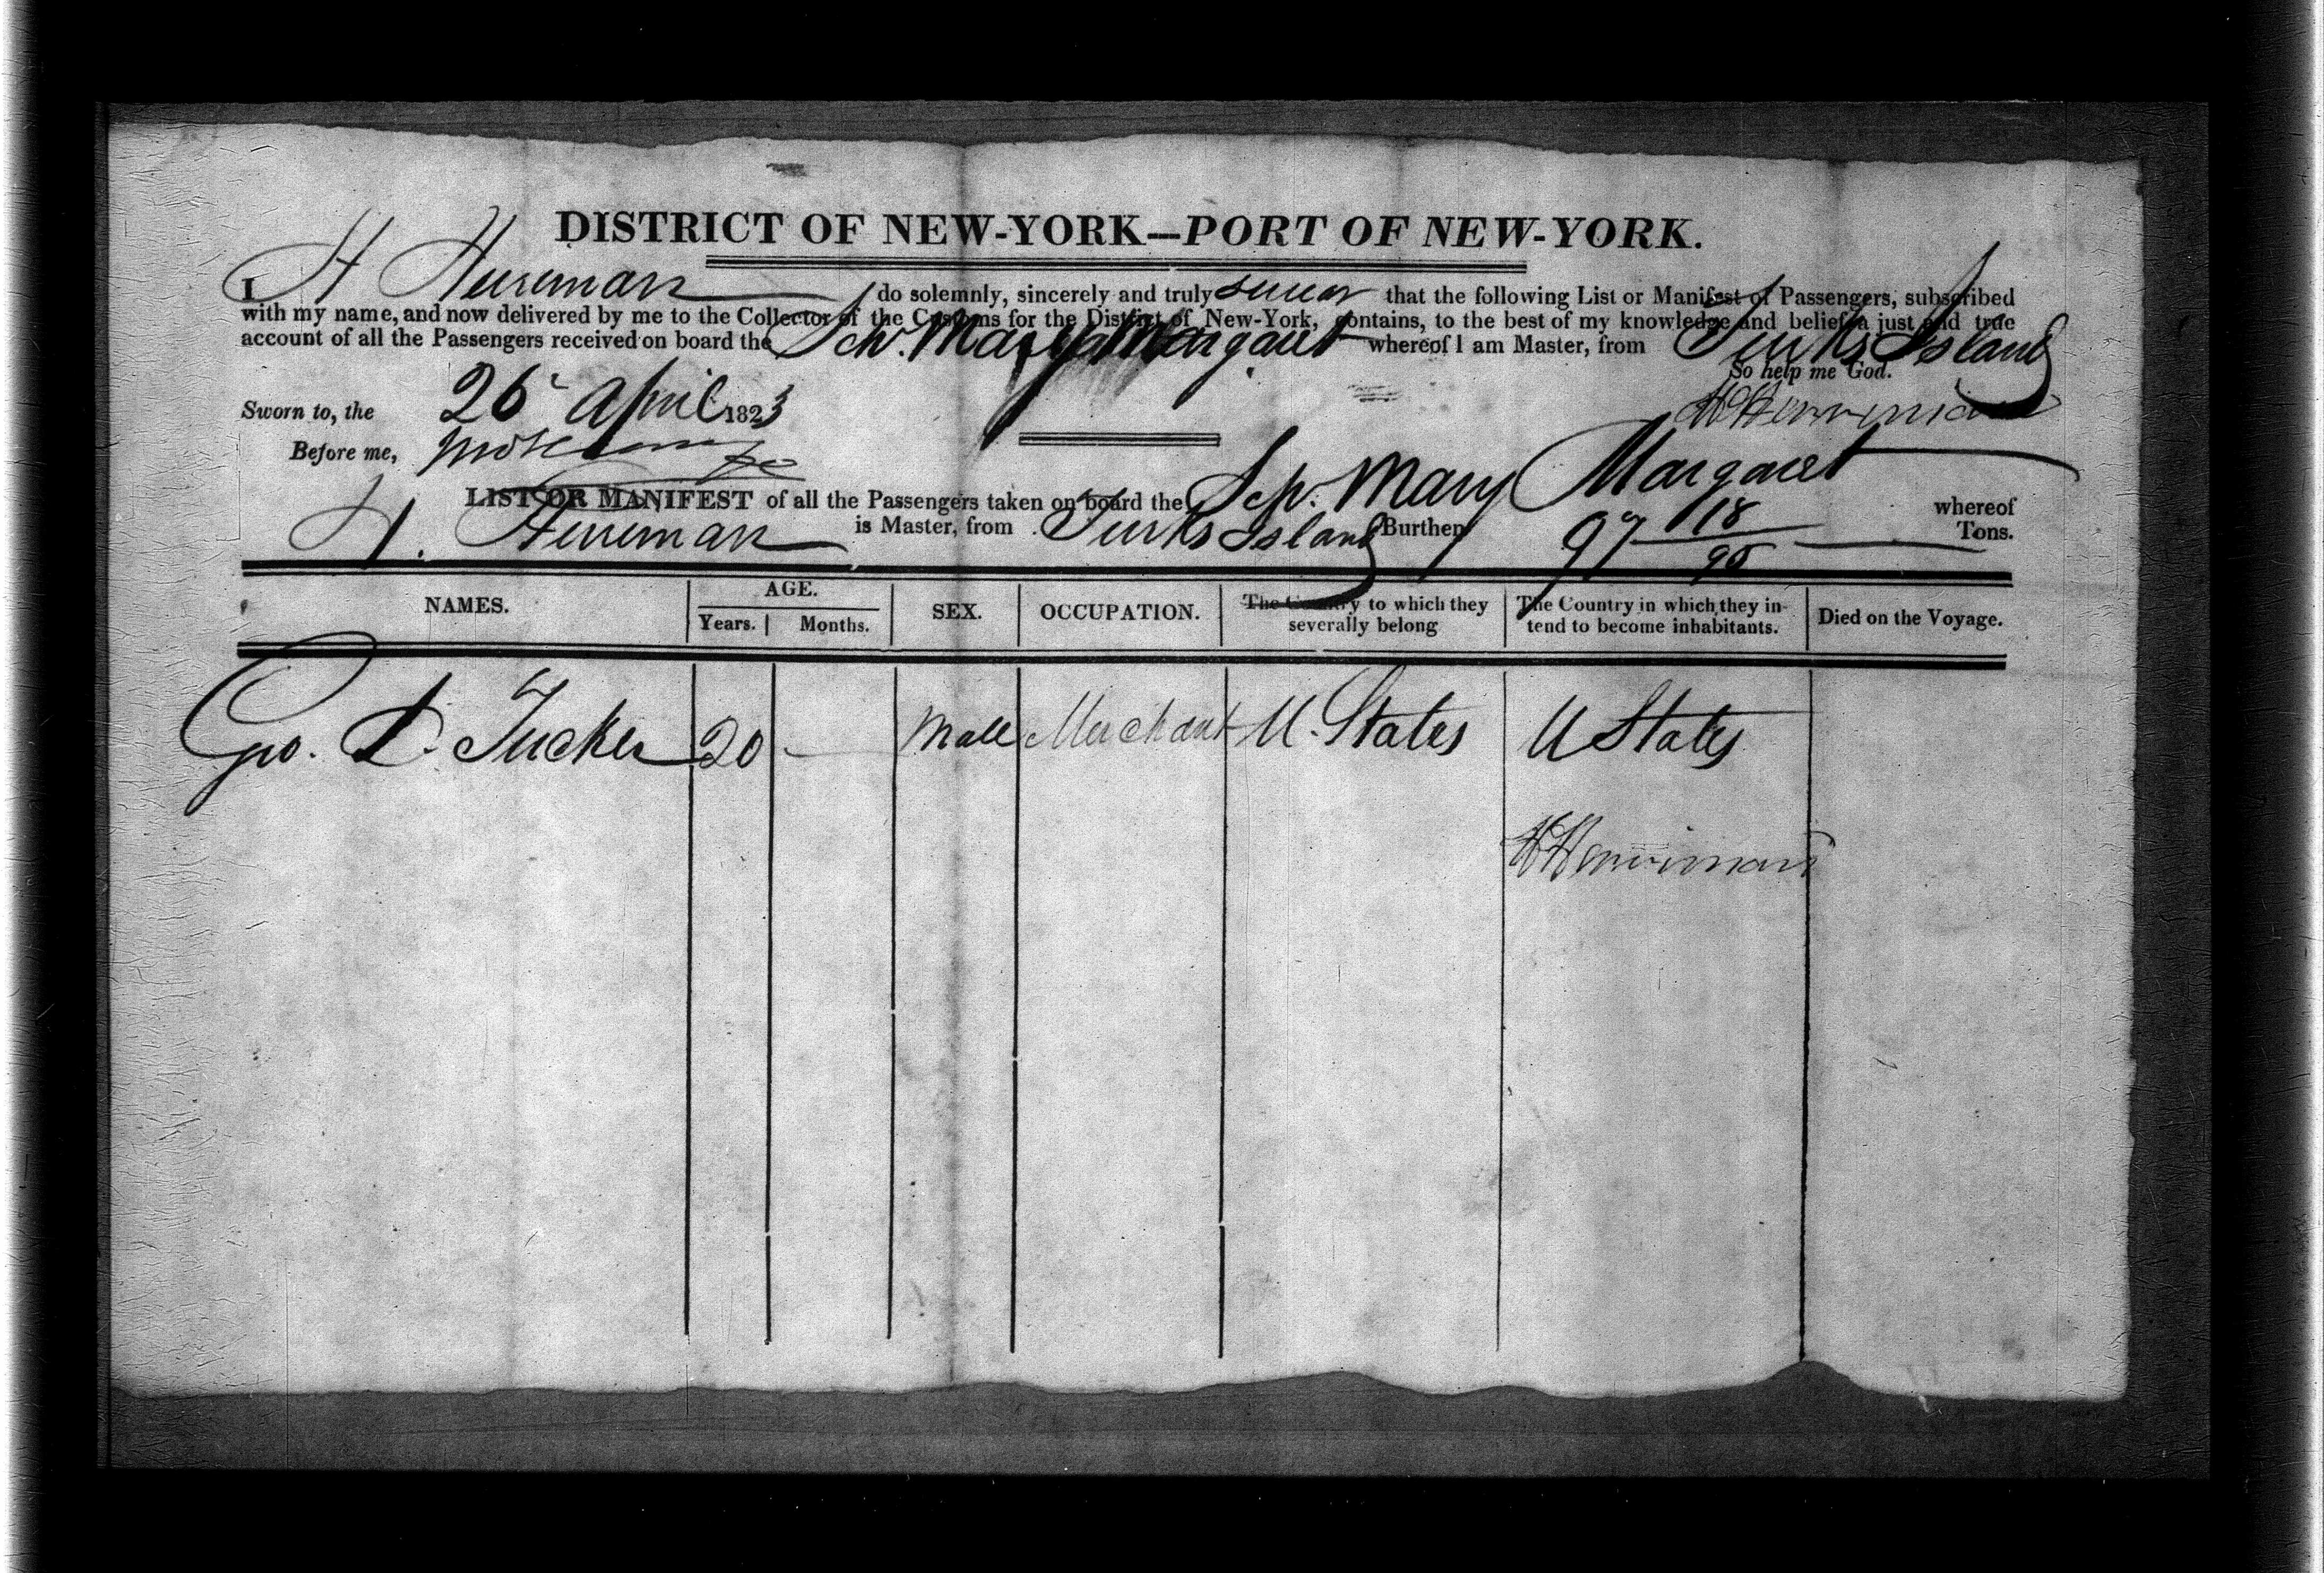 DISTRICT OF NEW-YORK—PORT OF NEW-YORK.
I H Herriman do solemnly, sincerely and truly swear that the following List or Manifest of Passengers, subscribed
with my name, and now delivered by me to the Collector of the Customs for the District of New-York, contains, to the best of my knowledge and belief, a just and true
account of all the Passengers received on board the Schr. Mary Margaret whereof I am Master, from Turks Island
So help me God.
Sworn to, the 26 April 1823
H Herriman
Before me,
LIST OR MANIFEST of all the Passengers taken on board the Schr. Mary Margaret whereof
H. Herriman is Master, from Turks Island Burthen 97 18/95 Tons.
NAMES. AGE. Years. Months. SEX. OCCUPATION. The Country to which they severally belong The Country in which they intend to become inhabitants. Died on the Voyage.
Geo. D. Tucker 20 - Male Merchant U. States U States
H Herriman